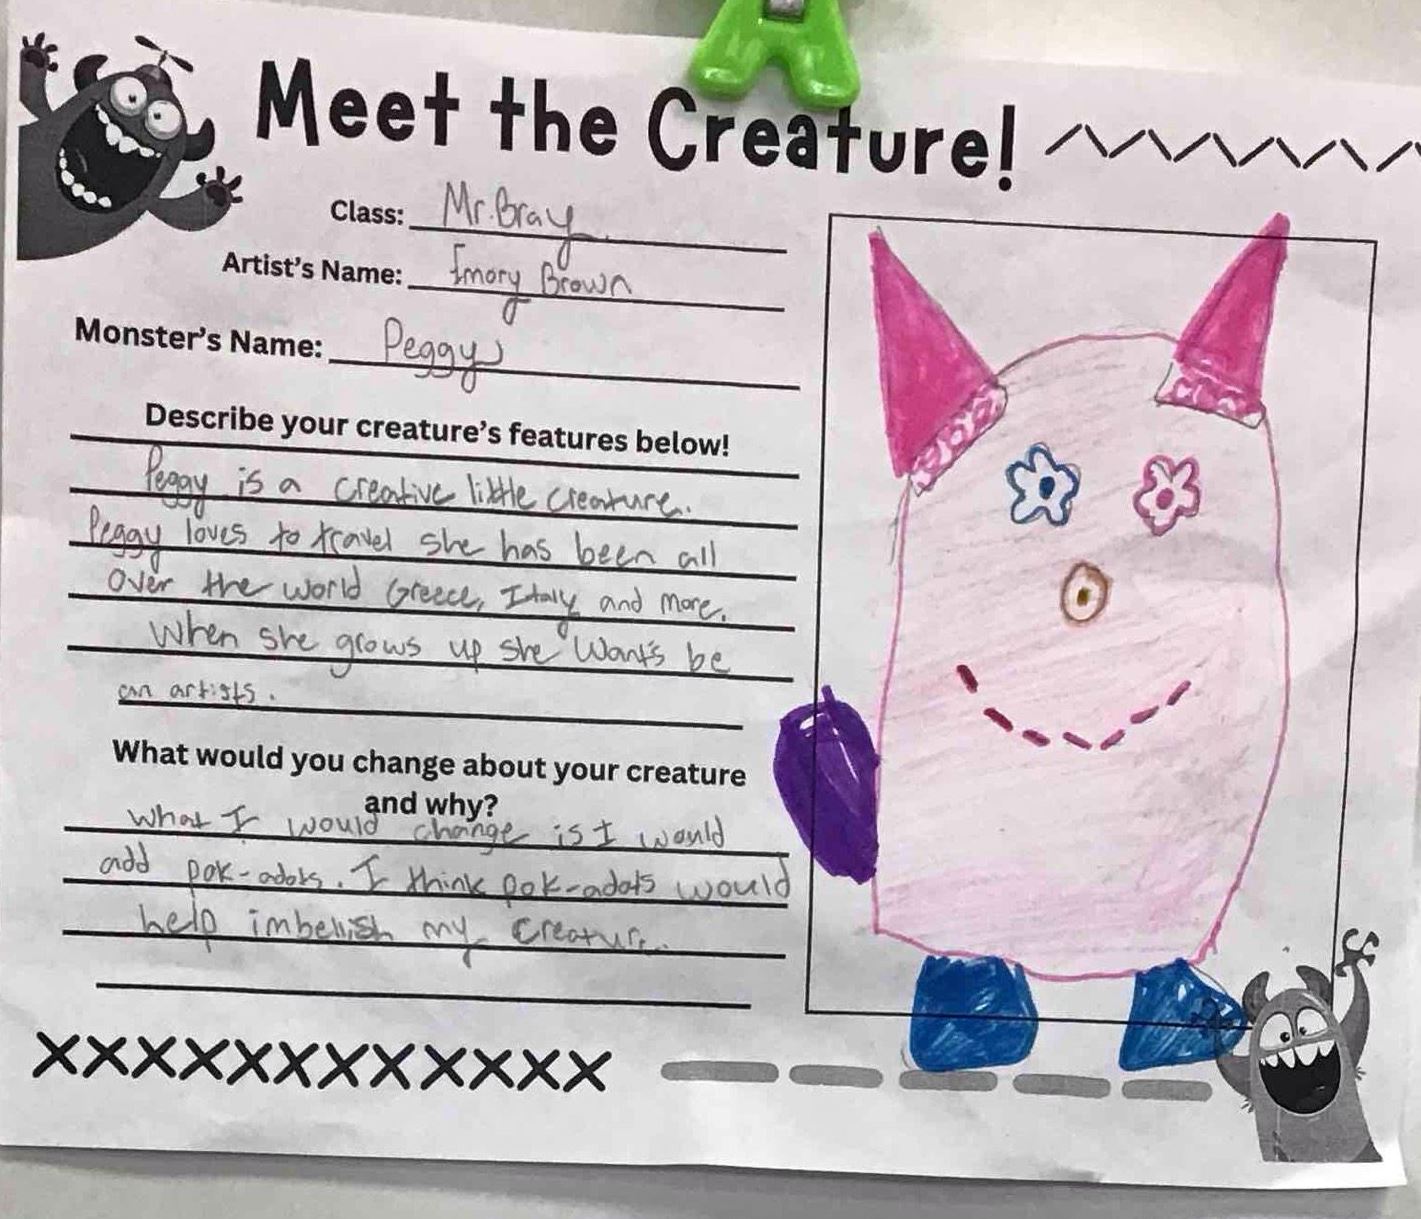 Meet the Creature!
Class: Mr. Bray
Artist's Name: Emory Brown
Monster's Name: Peggy
Describe your creature's features below!
Peggy is a creative little creature.
Peggy loves to travel she has been all
over the world Greece, Italy and more.
When she grows up she Want's be
an artists.
What would you change about your creature
and why?
What I would change is I would
add pok-adots. I think pok-adots would
help imbellish my creature.
XXXXXXXXXXXX